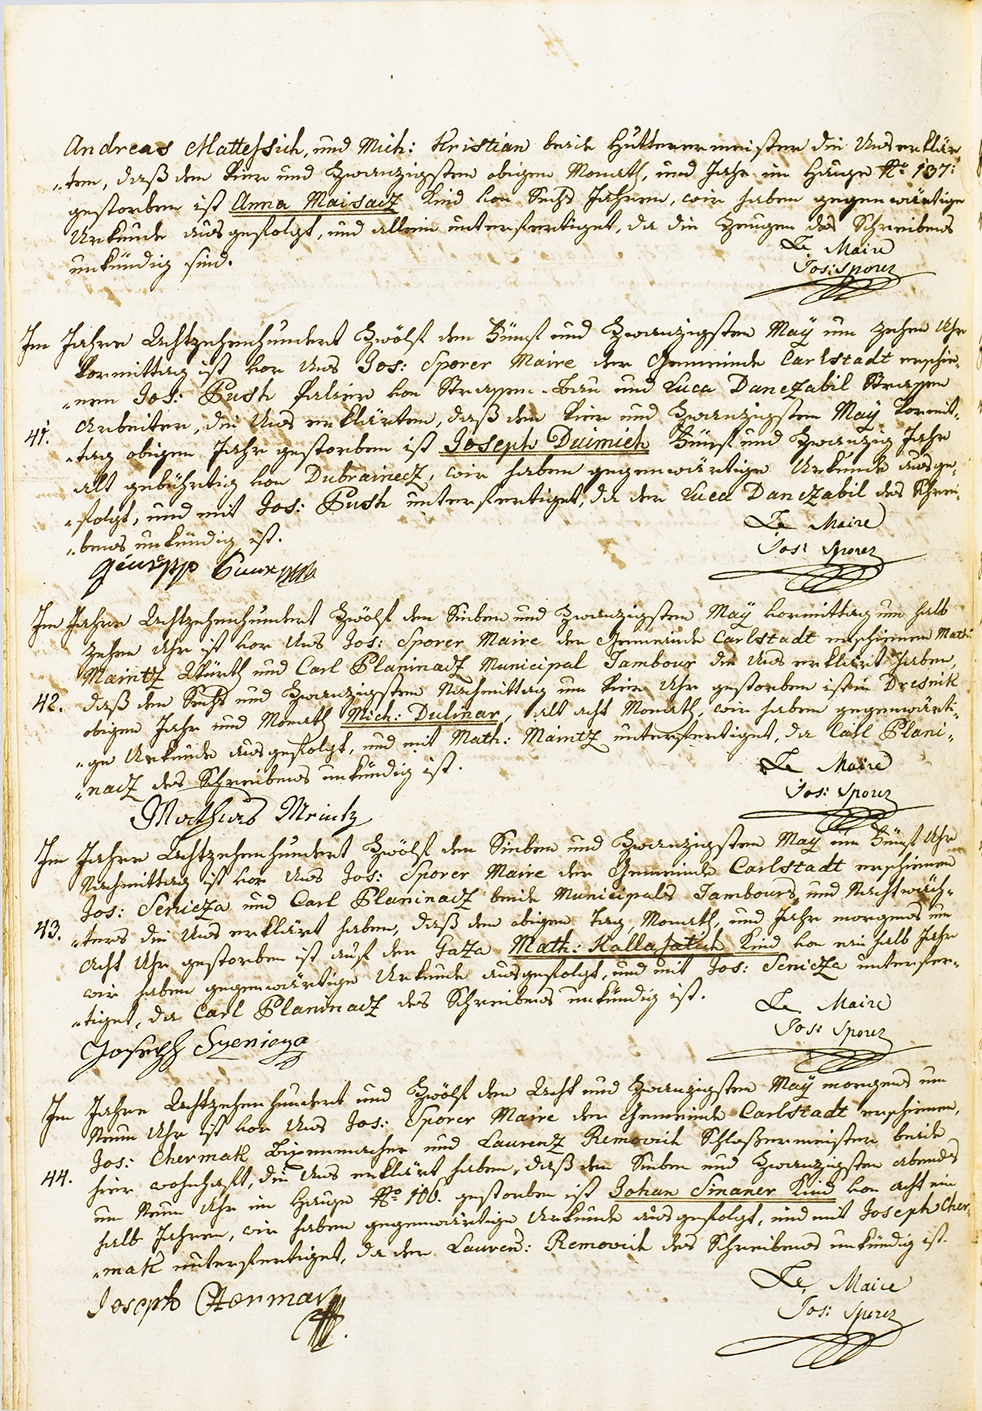 Andreas Mattessich, und Mich: Kristian beide Hutterermeister die Uns erklär
„ten, daß den Vier und Zwanzigsten obigen Monath, und Jahr im Hause No 137:
gestorben ist Anna Maisacz Kind von Sechs Jahren, wir haben gegenwärtige
Urkunde ausgefolgt, und allein unterfertiget, da die Zeugen des Schreibens
unkündig sind.
Le Maire
Jos: Sporer
Im Jahre Achtzehenhundert Zwölf den Fünf und Zwanzigsten May um zehen Uhr
Vormittag ist vor Uns Jos: Sporer Maire der Gemeinde Carlstadt erschie-
„nen Jos: Push Palier von Strassen-Bau und Luca Danczabil Strassen
41. Arbeiter, die Uns erklärten, daß den Vier und Zwanzigsten May Vormit-
„tag obigen Jahr gestorben ist Joseph Duimich Fünf und Zwanzig Jahr
alt gebührtig von Dubrainecz, wir haben gegenwärtige Urkunde ausge-
„folgt, und mit Jos: Push unterfertiget, da der Luca Danczabil des Schrei-
„bens unkündig ist.
Le Maire
Jos: Sporer
Im Jahre Achtzehenhundert Zwölf den Sieben und Zwanzigsten May Vormittag um halb
zehen Uhr ist vor Uns Jos: Sporer Maire der Gemeinde Carlstadt erschienen Math:
Maintz Würth und Carl Planinacz Municipal Tambour die Uns erklärt haben,
42. daß den Sechs und Zwanzigsten Nachmittag um Vier Uhr gestorben ist in Dresnik
obigen Jahr und Monath Mich: Dulinar, alt acht Monath, wir haben gegenwärti-
„ge Urkunde ausgefolgt, und mit Math: Maintz unterfertiget, da Carl Plani-
„nacz des Schreibens unkündig ist.
Le Maire
Jos: Sporer
Mathias Maintz
Im Jahre Achtzehenhundert Zwölf den Sieben und Zwanzigsten May um Fünf Uhr
Nachmittag ist vor Uns Jos: Sporer Maire der Gemeinde Carlstadt erschienen
Jos: Senicza und Carl Planinacz beide Municipals Tambours und Nachtwäch-
43. „ters die Uns erklärt haben, daß den obigen Tag, Monath, und Jahr morgens um
Acht Uhr gestorben ist auf der Gaza Math: Kallafatich Kind von ein halb Jahr
wir haben gegenwärtige Urkunde ausgefolgt, und mit Jos: Senicza unterfer-
„tiget, da Carl Planinacz des Schreibens unkündig ist.
Le Maire
Jos: Sporer
Joseph Szenicza
Im Jahre Achtzehenhundert und Zwölf den Acht und Zwanzigsten May morgens um
Neun Uhr ist vor Uns Jos: Sporer Maire der Gemeinde Carlstadt erschienen,
Jos: Chermak Bixenmacher und Laurenz Removich Schloßermeister beide
44. hier wohnhaft, die Uns erklärt haben, daß den Sieben und Zwanzigsten abends
um Neun Uhr im Hause No 106. gestorben ist Johan Smaner Kind von acht ein
halb Jahren, wir haben gegenwärtige Urkunde ausgefolgt, und mit Joseph Cher-
„mak unterfertiget, da der Laurenz: Removich des Schreibens unkündig ist.
Le Maire
Jos: Sporer
Joseph Chermak